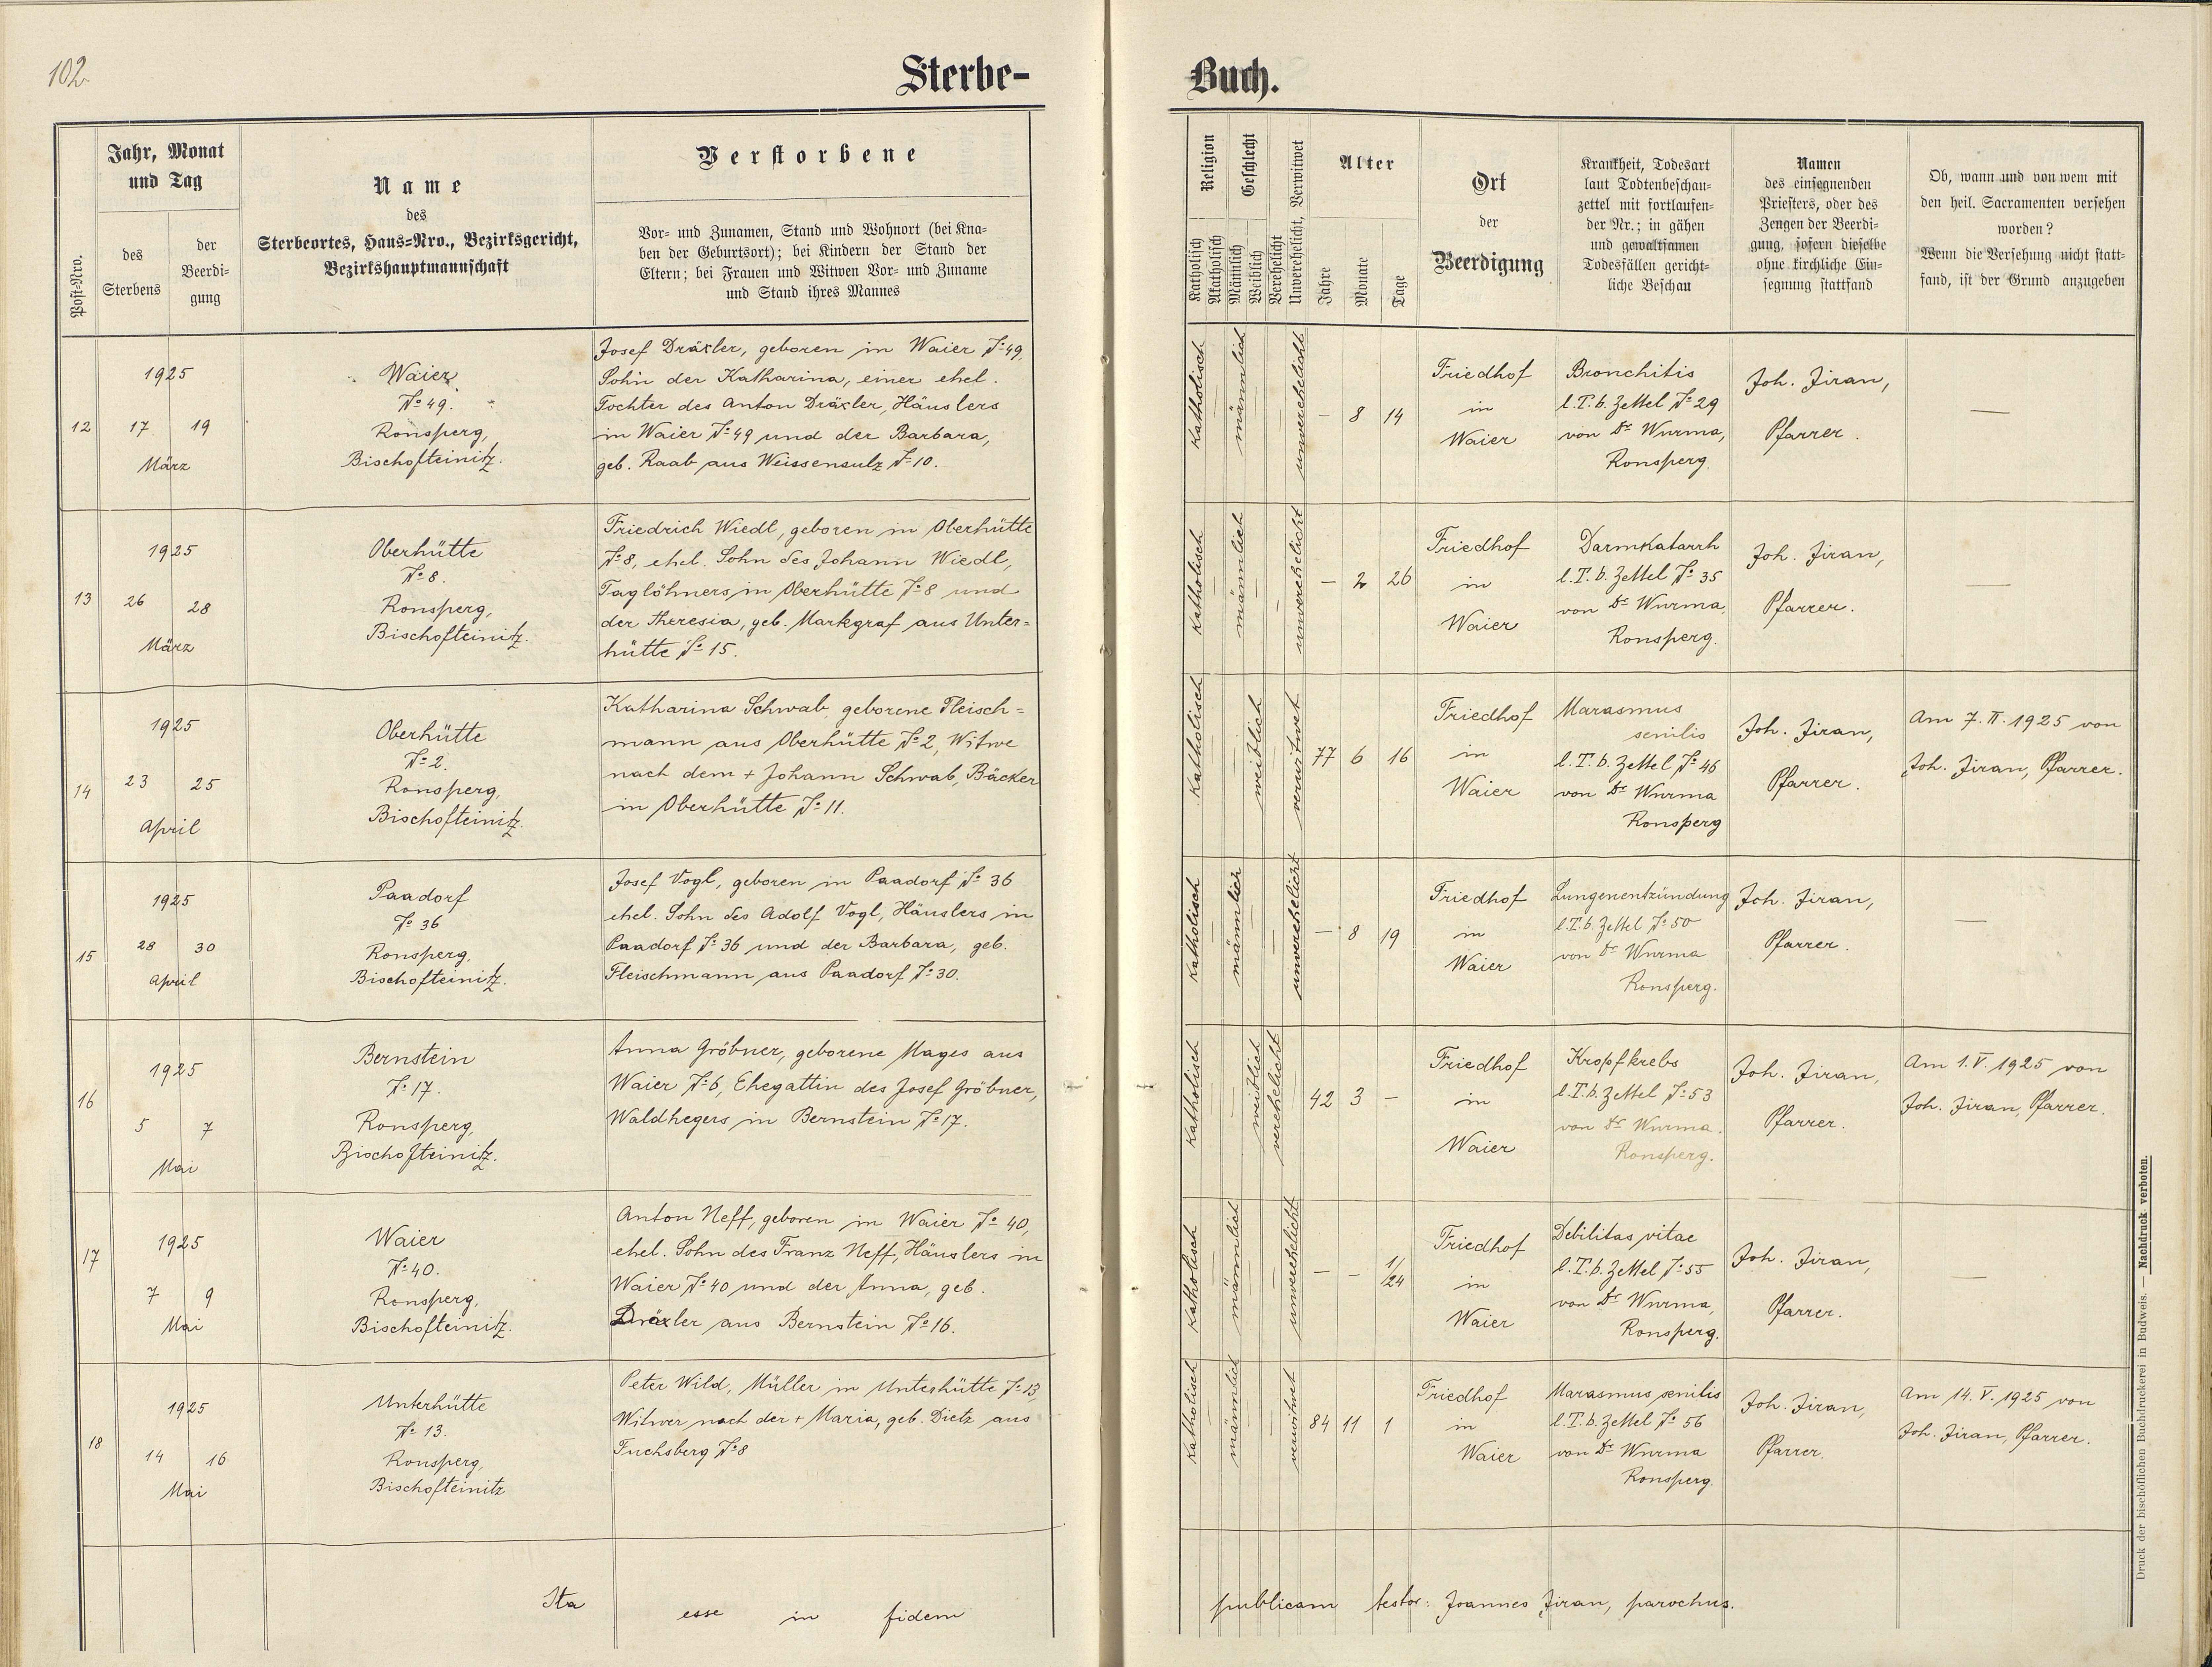 102.
Sterbe-
Buch.
Jahr, Monat
und Tag
des
Sterbens
der
Beerdi-
gung
Post-Nro.
Name
des
Sterbeortes, Haus-Nro., Bezirksgericht,
Bezirkshauptmannschaft
Verstorbene
Vor- und Zunamen, Stand und Wohnort (bei Kna-
ben der Geburtsort); bei Kindern der Stand der
Eltern; bei Frauen und Witwen Vor- und Zuname
und Stand ihres Mannes
Religion
Katholisch
Akatholisch
Geschlecht
Männlich
Weiblich
Verehelicht
Unverehelicht, Verwitwet
Alter
Jahre
Monate
Tage
Ort
der
Beerdigung
Krankheit, Todesart
laut Todtenbeschau-
zettel mit fortlaufen-
der Nr.; in gähen
und gewaltsamen
Todesfällen gericht-
liche Beschau
Namen
des einsegnenden
Priesters, oder des
Zeugen der Beerdi-
gung, sofern dieselbe
ohne kirchliche Ein-
segnung stattfand
Ob, wann und von wem mit
den heil. Sacramenten versehen
worden?
Wenn die Versehung nicht statt-
fand, ist der Grund anzugeben
12
1925
17 19
März
Waier
№ 49.
Ronsperg,
Bischofteinitz.
Josef Dräxler, geboren in Waier № 49,
Sohn der Katharina, einer ehel.
Tochter des Anton Dräxler, Häuslers
in Waier № 49 und der Barbara,
geb. Raab aus Weissensulz № 10.
Katholisch
männlich
unverehelicht
— 8 14
Friedhof
in
Waier
Bronchitis
l. T. b. Zettel № 29
von Dr Wurma,
Ronsperg.
Joh. Jiran,
Pfarrer.
—
13
1925
26 28
März
Oberhütte
№ 8.
Ronsperg,
Bischofteinitz.
Friedrich Wiedl, geboren in Oberhütte
№ 8, ehel. Sohn des Johann Wiedl,
Taglöhners in Oberhütte № 8 und
der Theresia, geb. Markgraf aus Unter=
hütte № 15.
Katholisch
männlich
unverehelicht
— 2 26
Friedhof
in
Waier
Darmkatarrh
l. T. b. Zettel № 35
von Dr Wurma,
Ronsperg.
Joh. Jiran,
Pfarrer.
—
14
1925
23 25
April
Oberhütte
№ 2.
Ronsperg,
Bischofteinitz.
Katharina Schwab geborene Fleisch=
mann aus Oberhütte № 2, Witwe
nach dem + Johann Schwab, Bäcker
in Oberhütte № 11.
Katholisch
weiblich
verwitwet
77 6 16
Friedhof
in
Waier
Marasmus
senilis
l. T. b. Zettel № 46
von Dr Wurma
Ronsperg
Joh. Jiran,
Pfarrer.
Am 7. II. 1925 von
Joh. Jiran, Pfarrer.
15
1925
28 30
April
Paadorf
№ 36
Ronsperg,
Bischofteinitz.
Josef Vogl, geboren in Paadorf № 36
ehel. Sohn des Adolf Vogl, Häuslers in
Paadorf № 36 und der Barbara, geb.
Fleischmann aus Paadorf № 30.
Katholisch
männlich
unverehelicht
— 8 19
Friedhof
in
Waier
Lungenentzündung
l. T. b. Zettel № 50
von Dr Wurma
Ronsperg.
Joh. Jiran,
Pfarrer.
—
16
1925
5 7
Mai
Bernstein
№ 17.
Ronsperg,
Bischofteinitz.
Anna Gröbner, geborene Mages aus
Waier № 6, Ehegattin des Josef Gröbner,
Waldhegers in Bernstein № 17.
Katholisch
weiblich
verehelicht
42 3 —
Friedhof
in
Waier
Kropfkrebs
l. T. b. Zettel № 53
von Dr Wurma.
Ronsperg.
Joh. Jiran,
Pfarrer.
Am 1. V. 1925 von
Joh. Jiran, Pfarrer.
17
1925
7 9
Mai
Waier
№ 40.
Ronsperg,
Bischofteinitz.
Anton Neff, geboren in Waier № 40,
ehel. Sohn des Franz Neff, Häuslers in
Waier № 40 und der Anna, geb.
Dräxler aus Bernstein № 16.
Katholisch
männlich
unverehelicht
— — 1/24
Friedhof
in
Waier
Debilitas vitae
l. T. b. Zettel № 55
von Dr Wurma,
Ronsperg.
Joh. Jiran,
Pfarrer.
—
18
1925
14 16
Mai
Unterhütte
№ 13.
Ronsperg,
Bischofteinitz
Peter Wild, Müller in Unterhütte № 13,
Witwer nach der + Maria, geb. Dietz aus
Fuchsberg № 8
Katholisch
männlich
verwitwet
84 11 1
Friedhof
in
Waier
Marasmus senilis
l. T. b. Zettel № 56
von Dr Wurma
Ronsperg.
Joh. Jiran,
Pfarrer.
Am 14. V. 1925 von
Joh. Jiran, Pfarrer.
Ita esse in fidem publicam testor: Joannes Jiran, parochus.
Druck der bischöflichen Buchdruckerei in Budweis. — Nachdruck verboten.